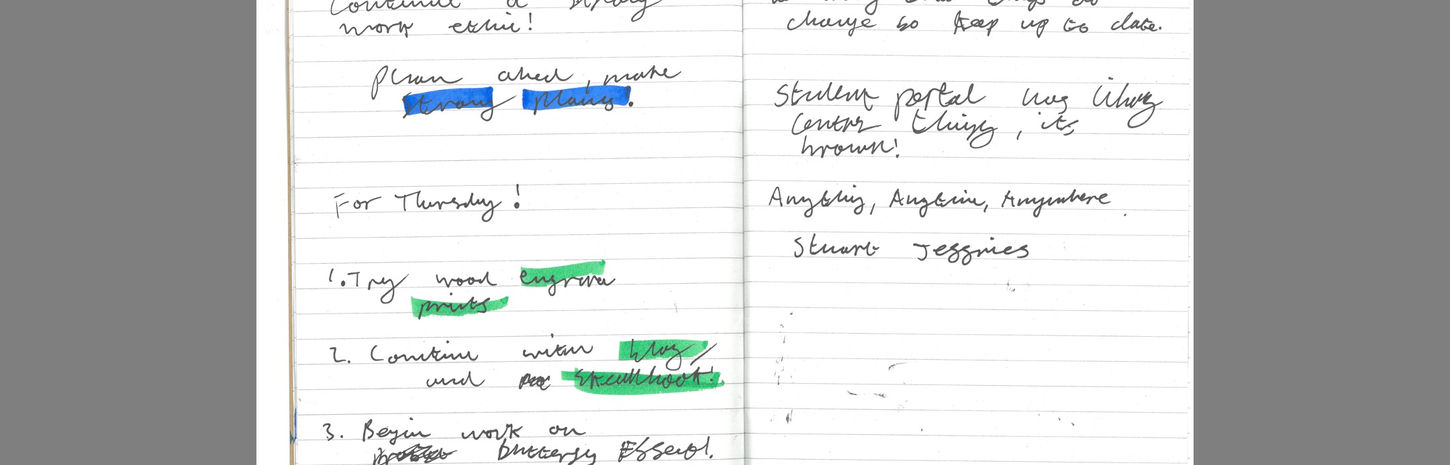 Continue a strong
work ethic!
Plan ahed, make
strong plans.
For Thursday!
1. Try wood engrave
prints
2. Continue with blog
and sketchbook!
3. Begin work on
butterfly Effect!
change so keep up to date.
Student portal has
Centre things, its
brown!
Anything, Anytime, Anywhere
Stuart Jeffries